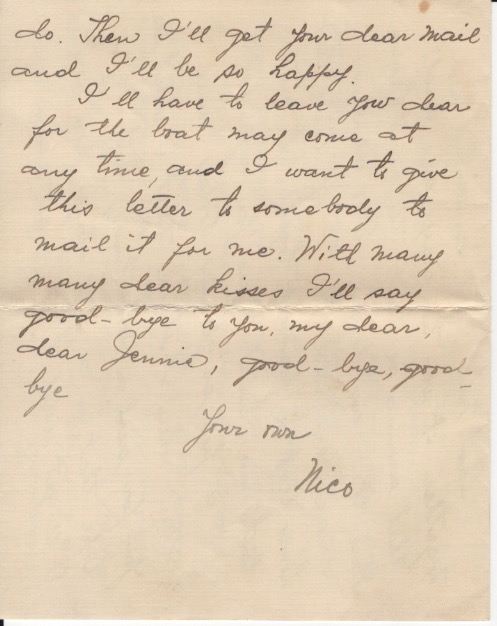 do. Then I'll get your dear mail
and I'll be so happy.
I'll have to leave you dear
for the boat may come at
any time, and I want to give
this letter to somebody to
mail it for me. With many
many dear kisses I'll say
good-bye to you, my dear,
dear Jennie, good-bye, good-
bye
Your own
Nico